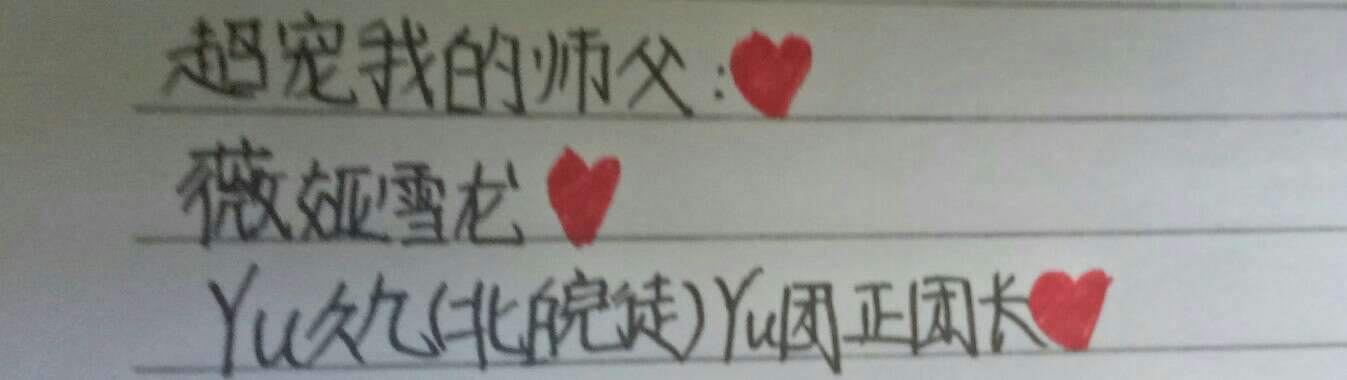 超宠我的师父:❤
薇娅雪龙❤
Yu久九(北皖徒)Yu团正团长❤